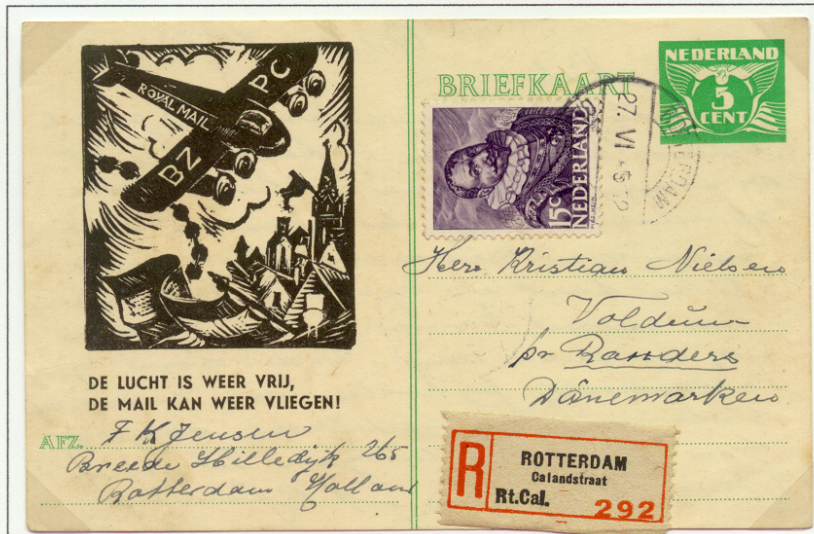 ROYAL MAIL
PC
BZ
DE LUCHT IS WEER VRIJ,
DE MAIL KAN WEER VLIEGEN!
AFZ. F K Jensen
Breede Hilledijk 265
Rotterdam Holland
BRIEFKAART
NEDERLAND
5
CENT
15c
NEDERLAND
27. VI
ROTTERDAM
Herr Kristian Nielsen
Voldum
pr Randers
Dänemarken
R
ROTTERDAM
Calandstraat
Rt.Cal.
292